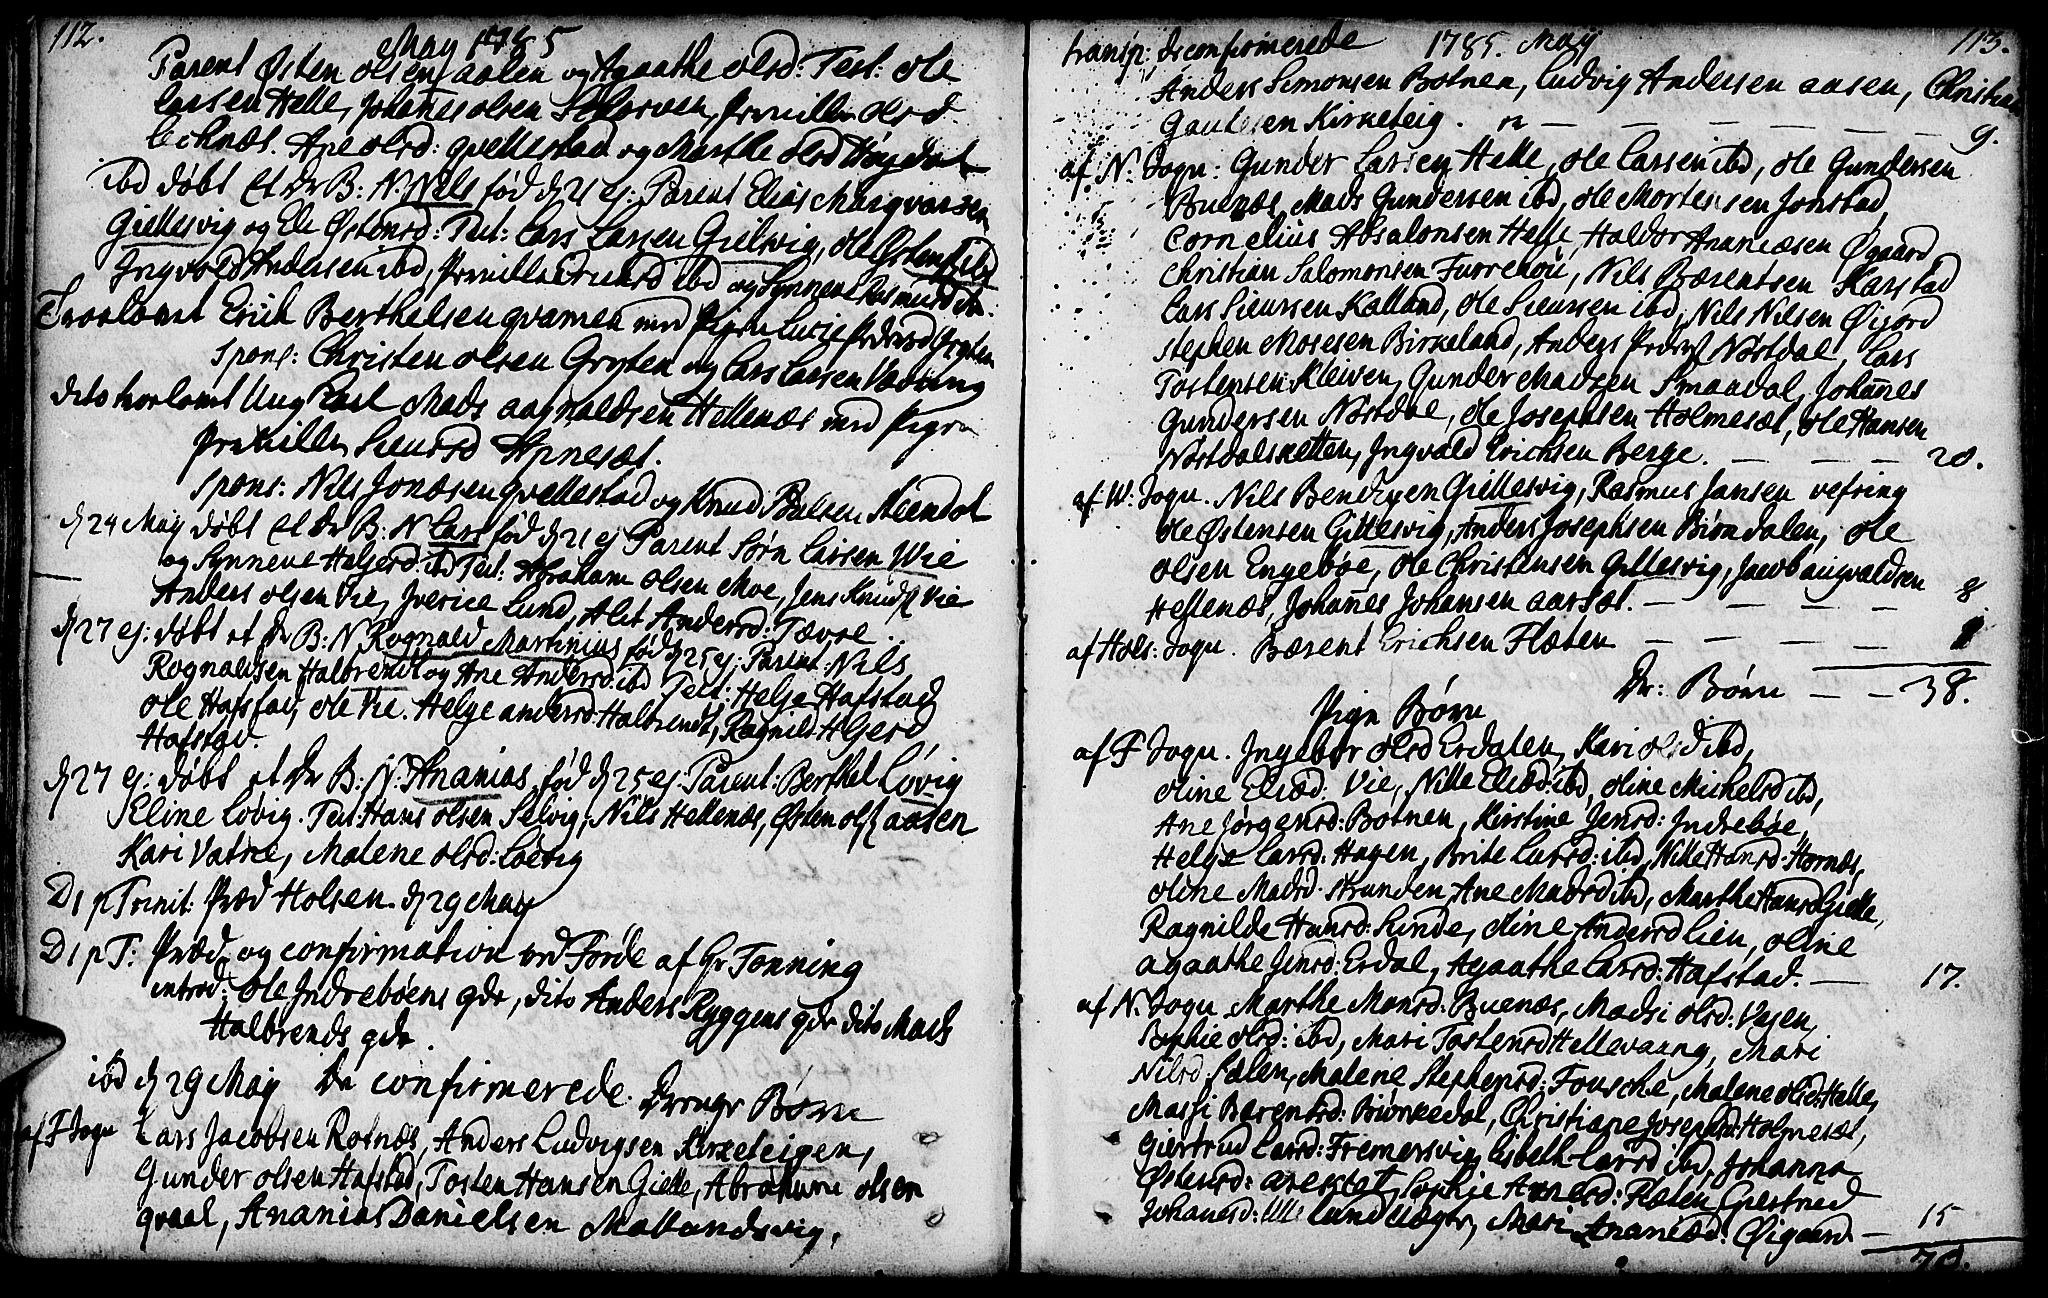 112.
May 1785
Parent Østen olsen aalen og Agaathe olsd: Test: ole
Larsen Helle, Johanes olsen Pernille olsd
Ane olsd: qvellestad og Marthe olsd
ibd døbt et Dr B: N: Nils fød d 21 ej: Parent Elias Masqvorsen
Giellesvig og Ele Østensd: Test: Lars Larsen Gielsvig, ole Østens ibd
Ingvold Andersen ibd, Pernille ibd og Synneve Rasmusd ibd.
Troelovet Erich Berthelsen qvamen med Pigen Lucie Pedersd Gryten
Spons: Christen olsen Gryten og Lars Larsen Vadving
dito trolovet Ung Karl Mads aagnaldsen Hellenæs med Pigen
Pernille Siursd
Spons: Nils Jonæsen qvellestad og Knud Paulsen Steendal
d 24 May døbt et Dr B: N Lars fød d 21 ej Parent Sørn Larsen Wie
og Synneve Helgersd: ibd Test: Abraham olsen Moe, Jens Knuds Vie
Anders olsen Vie, Lund, Alet Andersd:
d 27 ej: døbt et Dr B: N Rognald Martinius fød d 25 ej: Parent: Nils
Rognaldsen Halbrendt og Ane Andersd: ibd Test: Helge Hafstad
ole Hafstad, ole Vie. Helge andersd: Halbrendt, Ragnild
Hafstad.
d 27 ej: døbt et Dr B: N: Ananias fød d 25 ej: Parent: Berthel Løvig
Eline Løvig. Test: Hans olsen Selvig, Nils Hellenæs, Østen ols aasen
Kari Vatne, Malene olsd: Løvig
D 1 p Trinit: Præd Holsen d 29 May
D 1 p T: Præd og confirmation ved Førde af Hr Tonning
introd: ole Indrebøens qde, dito Anders Ryggens qde dito Mads
Halbrends qde.
ibd d 29 May De confirmerede. Drenge Børn
af F Sogn Lars Jacobsen Rotnæs, Anders Ludvigsen Kirketeigen,
Gunder olsen Hafstad, Tosten Hansen Gielle, Abraham olsen
qvaal, Ananias Danielsen Mallandsvig,
113.
transp: de confirmerede 1785. May
Anders Simonsen Botnen, Ludvig Andersen aasen, Christian
Gautesen Kirketeig. — — — — — — 9.
af N: Sogn: Gunder Larsen Helle, ole Larsen ibd, ole Gundersen
Buenæs, Mads Gundersen ibd, ole Mortensen Jonstad,
Cornelius Absalonsen Helle, Haldor Ananiæsen Øgaard
Christian Salomonsen Furrehou, Nils Bærentsen Karstad
Lars Siursen Kalland, ole Siursen ibd, Nils Nilsen Øigord
Stephen Mosesen Birkeland, Anders Peders Nostdal, Lars
Tostensen Kleiven, Gunder Madsen Smaadal, Johañes
Gundersen Nostdal, ole Josephsen Holmesæt, ole Hansen
Nostdalsketten, Ingvald Erichsen Berge. — — — 20.
af W: Sogn. Nils Bendixen Giellesvig, Rasmus Jansen vefring
ole Østensen Gillesvig, Anders Josephsen Biørndalen, ole
olsen Engebøe, ole Christensen Gillesvig, Jacob aagvaldsen
Hellenæs, Johañes Johansen aarsæt. — — — — 8
af Hols: Sogn. Bærent Erichsen Flaten — — — — 1
Dr: Børn — — 38.
Pige Børn
af F Sogn. Ingebor olsd Erdalen, Kari olsd ibd,
oline Eliæd: Vie, Nille Eliæd: ibd, oline Michelsd ibd,
Ane Jørgensd: Botnen, Kirstine Jensd: Indrebøe,
Helge Larsd: Hagen, Brite Larsd: ibd, Nille Hansd: Hornæs,
oline Madsd: Strunden, Ane Madsd ibd, Marthe Hansd Gielle,
Ragnilde Hansd: Sunde, oline Andersd Lien, oline
agaathe Jensd: Erdal, Agaathe Larsd: Hafstad. — 17.
af N: Sogn Marthe Monsd: Buenæs, Madsi olsd: Vasen,
Sophie olsd: ibd, Mari Tostensd Hellevaang, Mari
Nilsd: Sælen, Malene Stephensd: Fousche, Malene olsd: Helle,
Massi Bærentsd: Biørkedal, Christiane Josephsd: Holmesæt,
Giertrud Larsd: Fremersvig, Lisbeth Larsd ibd, Johanna
Østensd: Sophie Arnesd: Flaten, Giertrud
Johansd: Mari Ananiæd: Øigaard — 15
70.